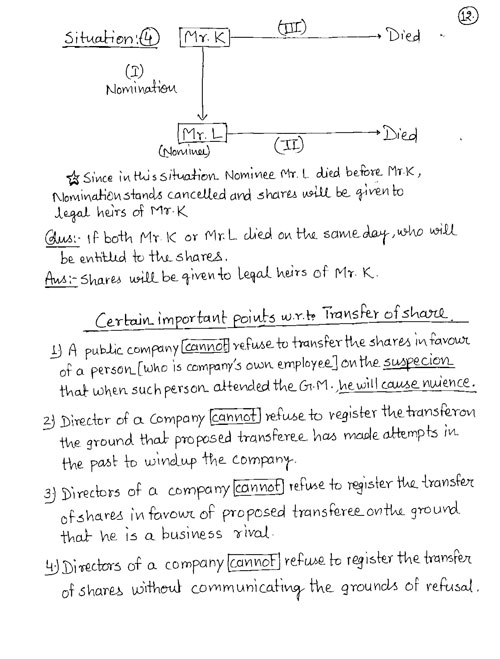 12.
Situation: 4 Mr. K (III) Died
(I)
Nomination
Mr. L (II) Died
(Nominee)
☆ Since in this situation Nominee Mr. L died before Mr. K,
Nomination stands cancelled and shares will be given to
legal heirs of Mr. K
Ques:- If both Mr. K or Mr. L died on the same day, who will
be entitled to the shares.
Ans:- Shares will be given to legal heirs of Mr. K.
Certain important points w.r.to Transfer of share.
1) A public company cannot refuse to transfer the shares in favour
of a person [who is company's own employee] on the suspecion
that when such person attended the G.M., he will cause nuience.
2) Director of a Company cannot refuse to register the transfer on
the ground that proposed transferee has made attempts in
the past to windup the company.
3) Directors of a company cannot refuse to register the transfer
of shares in favour of proposed transferee on the ground
that he is a business rival.
4) Directors of a company cannot refuse to register the transfer
of shares without communicating the grounds of refusal.